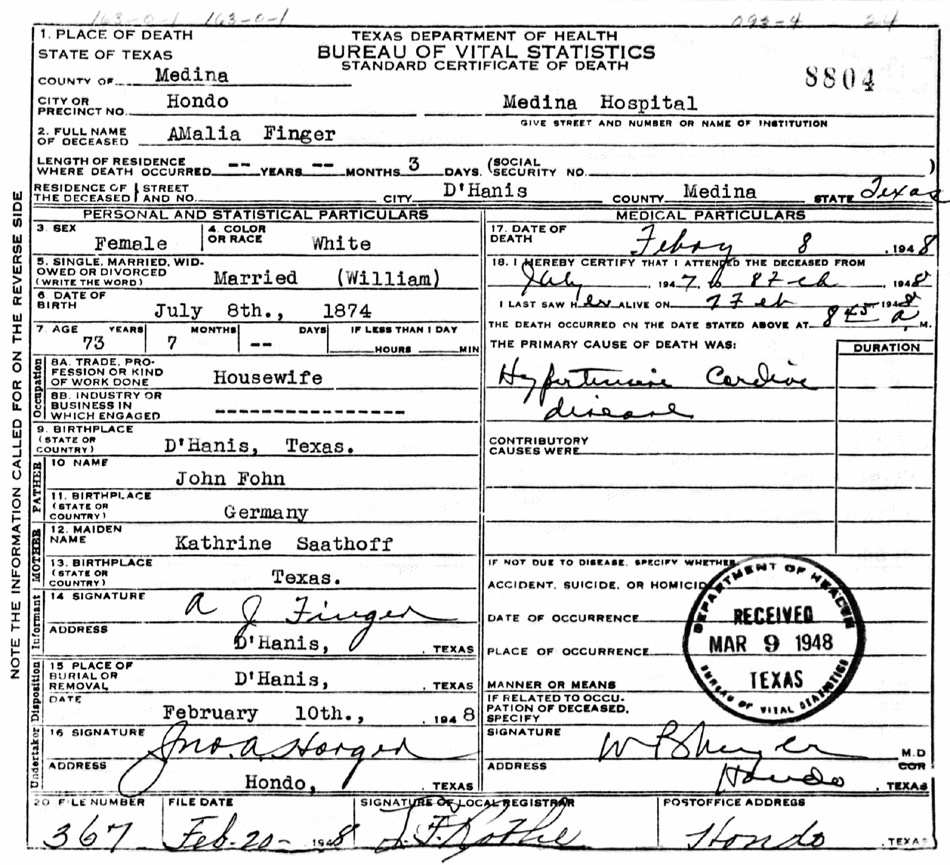 163-0-1 163-0-1 093-4 24
1. PLACE OF DEATH
STATE OF TEXAS
TEXAS DEPARTMENT OF HEALTH
BUREAU OF VITAL STATISTICS
STANDARD CERTIFICATE OF DEATH
8804
COUNTY OF Medina
CITY OR PRECINCT NO. Hondo Medina Hospital
GIVE STREET AND NUMBER OR NAME OF INSTITUTION
2. FULL NAME OF DECEASED AMalia Finger
LENGTH OF RESIDENCE WHERE DEATH OCCURRED -- YEARS -- MONTHS 3 DAYS. (SOCIAL SECURITY NO. )
RESIDENCE OF THE DECEASED STREET AND NO. CITY D'Hanis COUNTY Medina STATE Texas
NOTE THE INFORMATION CALLED FOR ON THE REVERSE SIDE
PERSONAL AND STATISTICAL PARTICULARS
3. SEX Female 4. COLOR OR RACE White
5. SINGLE, MARRIED, WIDOWED OR DIVORCED (WRITE THE WORD) Married (William)
6. DATE OF BIRTH July 8th., 1874
7. AGE YEARS MONTHS DAYS IF LESS THAN 1 DAY
73 7 -- HOURS MIN
Occupation
8A. TRADE, PROFESSION OR KIND OF WORK DONE Housewife
8B. INDUSTRY OR BUSINESS IN WHICH ENGAGED ----------------
9. BIRTHPLACE (STATE OR COUNTRY) D'Hanis, Texas.
FATHER
10 NAME John Fohn
11. BIRTHPLACE (STATE OR COUNTRY) Germany
MOTHER
12. MAIDEN NAME Kathrine Saathoff
13. BIRTHPLACE (STATE OR COUNTRY) Texas.
Informant
14 SIGNATURE A J Finger
ADDRESS D'Hanis, , TEXAS
Disposition
15 PLACE OF BURIAL OR REMOVAL D'Hanis, , TEXAS
DATE February 10th., , 194 8
Undertaker
16 SIGNATURE Jno. A. Horger
ADDRESS Hondo, , TEXAS
MEDICAL PARTICULARS
17. DATE OF DEATH Febry 8 , 194 8
18. I HEREBY CERTIFY THAT I ATTENDED THE DECEASED FROM
July 194 7 to 8 Feb 194 8
I LAST SAW H er ALIVE ON 7 Feb 194 8
THE DEATH OCCURRED ON THE DATE STATED ABOVE AT 8 45 a . M.
THE PRIMARY CAUSE OF DEATH WAS: DURATION
Hypertensive Cardiac
disease
CONTRIBUTORY CAUSES WERE
IF NOT DUE TO DISEASE, SPECIFY WHETHER
ACCIDENT, SUICIDE, OR HOMICID
DATE OF OCCURRENCE
PLACE OF OCCURRENCE
MANNER OR MEANS
IF RELATED TO OCCUPATION OF DECEASED, SPECIFY
DEPARTMENT OF HEALTH
RECEIVED
MAR 9 1948
TEXAS
BUREAU OF VITAL STATISTICS
SIGNATURE M.D
ADDRESS Hondo COR , TEXAS
20 FILE NUMBER FILE DATE SIGNATURE OF LOCAL REGISTRAR POSTOFFICE ADDRESS
367 Feb-20- 1948 Hondo , TEXAS